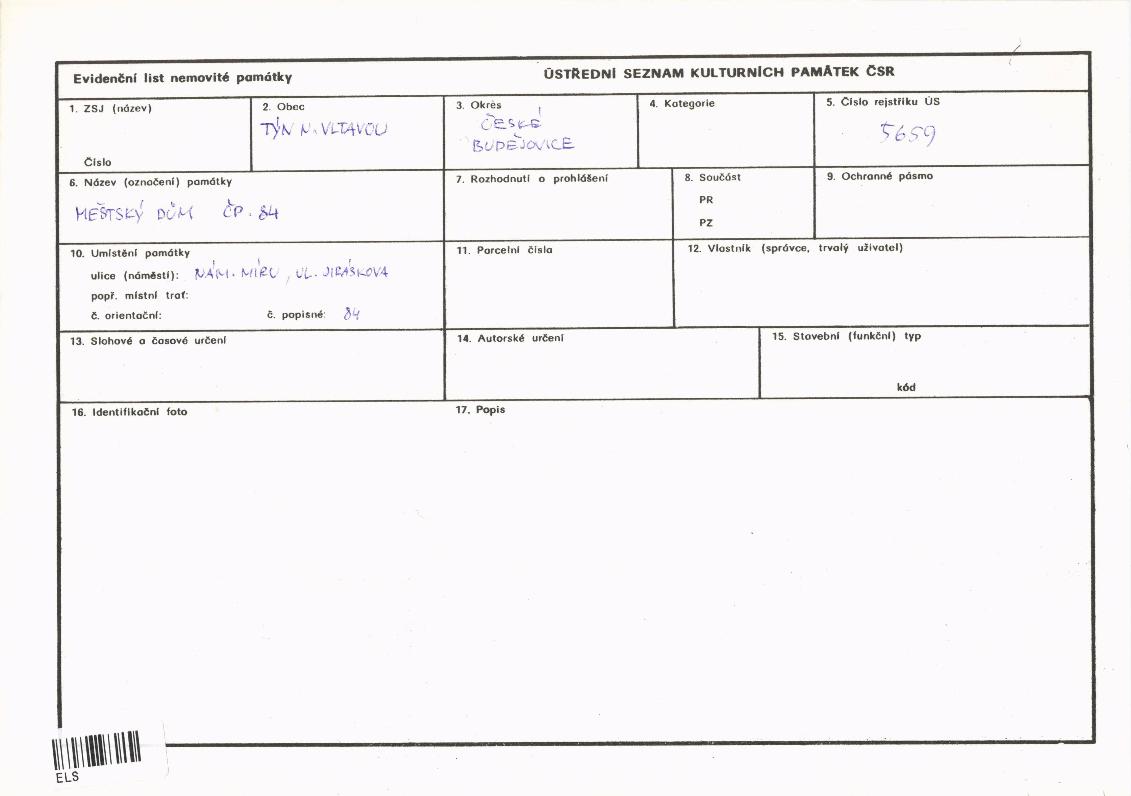 Evidenční list nemovité památky
ÚSTŘEDNÍ SEZNAM KULTURNÍCH PAMÁTEK ČSR
1. ZSJ (název)
Číslo
2. Obec
TÝN N. VLTAVOU
3. Okres
ČESKÉ
BUDĚJOVICE
4. Kategorie
5. Číslo rejstříku ÚS
5659
6. Název (označení) památky
MĚŠTSKÝ DŮM ČP. 84
7. Rozhodnutí o prohlášení
8. Součást
PR
PZ
9. Ochranné pásmo
10. Umístění památky
ulice (náměstí): NÁM. MÍRU, UL. JIRÁSKOVA
popř. místní trať:
č. orientační: č. popisné: 84
11. Parcelní čísla
12. Vlastník (správce, trvalý uživatel)
13. Slohové a časové určení
14. Autorské určení
15. Stavební (funkční) typ
kód
16. Identifikační foto
17. Popis
ELS